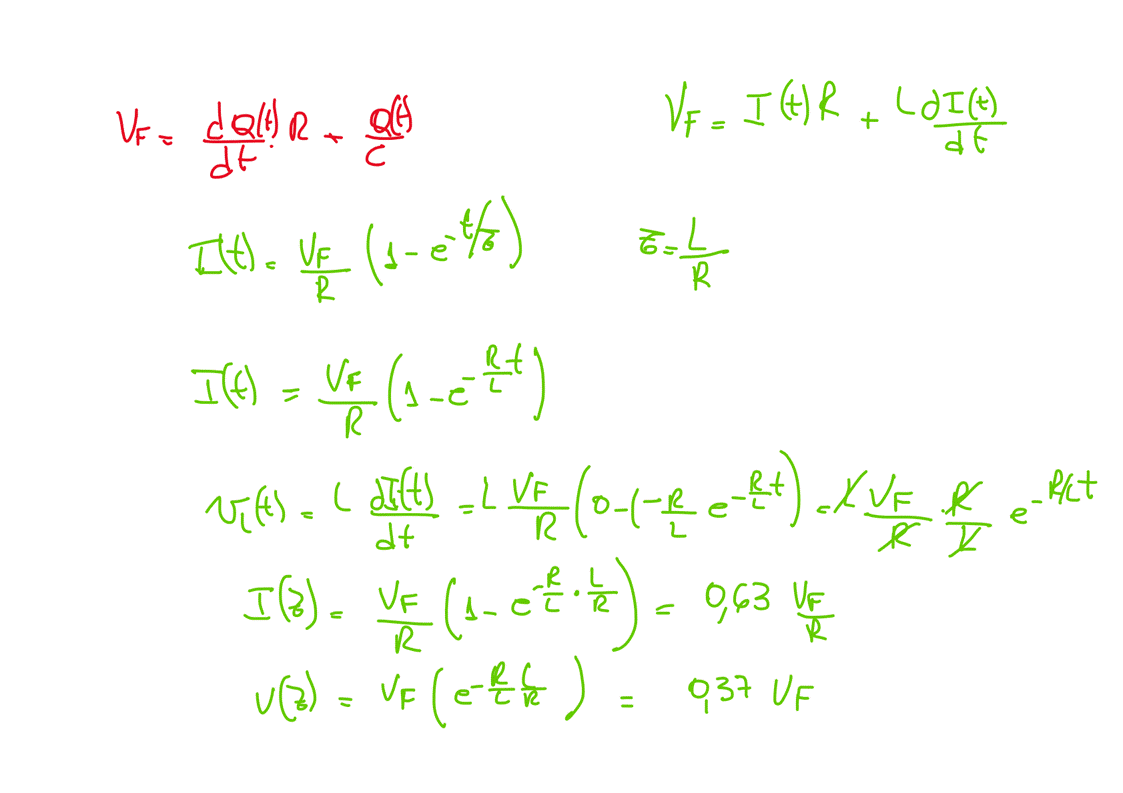 V_F = dQ(t)/dt · R + Q(t)/C
V_F = I(t) R + L dI(t)/dt
I(t) = V_F/R (1 - e^(-t/τ))
τ = L/R
I(t) = V_F/R (1 - e^(-R/L t))
v_L(t) = L dI(t)/dt = L V_F/R (0 - (-R/L e^(-R/L t)) = L V_F/R · R/L e^(-R/L t)
I(τ) = V_F/R (1 - e^(-R/L · L/R)) = 0,63 V_F/R
v(τ) = V_F (e^(-R/L L/R)) = 0,37 V_F